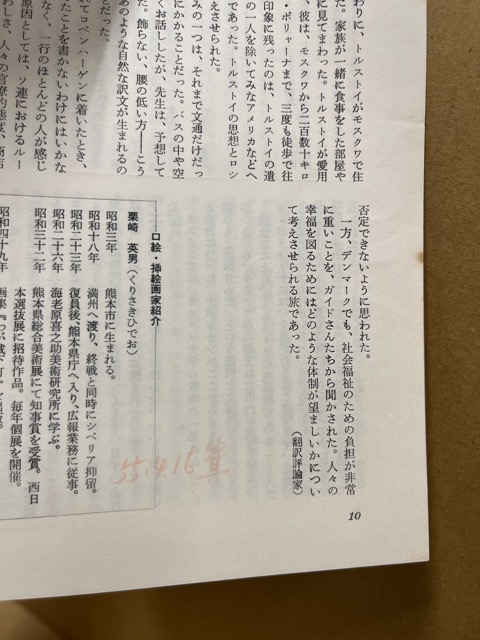 わりに、トルストイがモスクワで住
た。家族が一緒に食事をした部屋や
に見てまわった。トルストイが愛用
彼は、モスクワから二百数十キロ
・ポリャーナまで、三度も徒歩で往
印象に残ったのは、トルストイの遺
の一人を除いてみなアメリカなどへ
であった。トルストイの思想とロシ
えさせられた。
みの一つは、それまで文通だけだっ
にかかることだった。バスの中や空
くお話ししたが、先生は、予想して
た。飾らない、腰の低い方――こう
あのような自然な訳文が生まれるの
だった。
れてコペンハーゲンに着いたとき、
たことを書かないわけにはいかな
なく、一行のほとんどの人が感じ
原因としては、ソ連におけるルー
わしさ、人々の官僚的態度、商店
否定できないように思われた。
一方、デンマークでも、社会福祉のための負担が非常
に重いことを、ガイドさんたちから聞かされた。人々の
幸福を図るためにはどのような体制が望ましいかについ
て考えさせられる旅であった。
（翻訳評論家）
口絵・挿絵画家紹介
栗崎 英男（くりさきひでお）
昭和三年 熊本市に生まれる。
昭和十八年 満州へ渡り、終戦と同時にシベリア抑留。
昭和二十三年 復員後、熊本県庁へ入り、広報業務に従事。
昭和二十六年 海老原喜之助美術研究所に学ぶ。
昭和三十二年 熊本県総合美術展にて知事賞を受賞。西日
本選抜展に招待作品。毎年個展を開催。
昭和四十九年
55.4.16
10